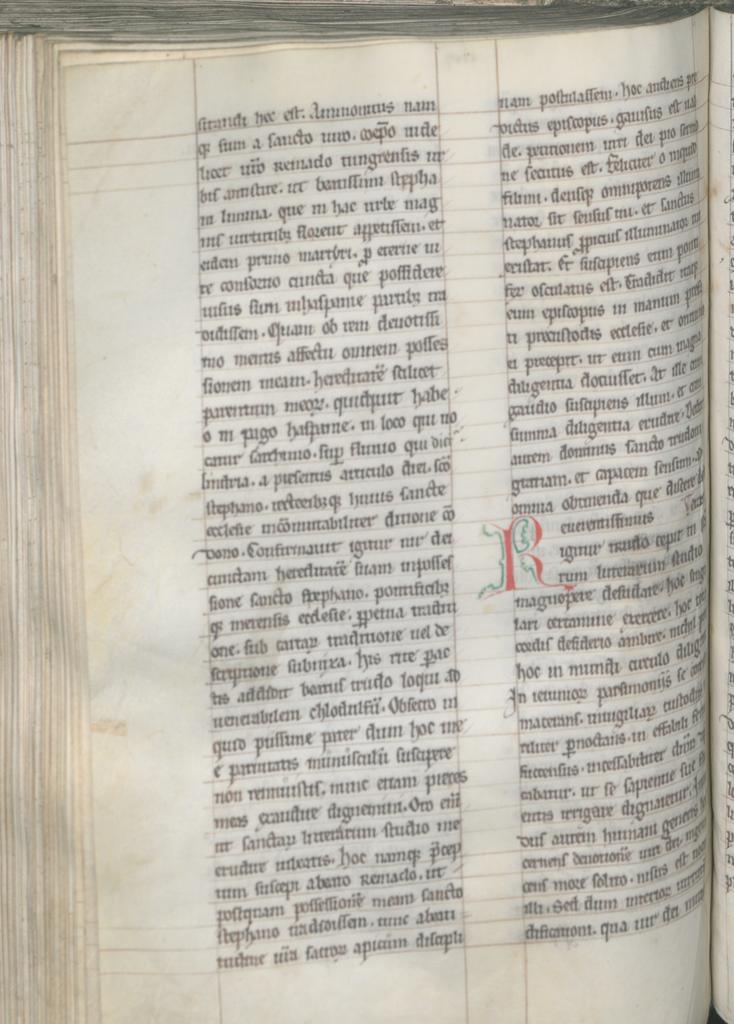 strandi hec est. Ammonitus nam
q; sum a sancto uiro. coepo uide
licet uiro Remaclo tungrensis ur
bis antistite. ut beatissimi stepha
ni limina. que in hac urbe mag
nis uirtutib; florent appetissem. et
eidem primo martyri. p eterne ui
te consorcio cuncta que possidere
uisus sum in haspanie partib; tra
didissem. Quam ob rem deuotissi
mo mentis affectu omnem posses
sionem meam. hereditatē scilicet
parentum meoꝝ. quicquit habe
o in pago haspanie. in loco qui uo
catur sarchinio. sup fluuio qui dicit̄
cindria. a presentis articulo diei. sc̄o
stephano. rectorib; q; huius sancte
ecclesie incōmutabiliter ditione cō
dono. Confirmauit igitur uir dei
cunctam hereditatē suam in posses
sione sancto stephano. pontificib;
q; metensis ecclesie. ppetua traditi
one. sub cartaꝝ traditione uel de
scriptione subnixa. his rite pac
tis addidit beatus trudo loqui ad
uenerabilem chlodulfū. Obsecro in
quid piissime pater dum hoc me
e paruitatis munusculū suscipere
non rennuistis. nunc etiam preces
meas exaudire dignemini. Oro eni
ut sanctaꝝ litterarum studio me
erudire iubeatis. hoc namque p̄cep
tum suscepi abbato Remaclo. ut
postquam possessionē meam sancto
stephano tradidissem. tunc abeati
tudine ur̄a sacroꝝ apicum discipli
nam postulassem. hoc audiens pre
dictus episcopus. gauisus est ual
de. petitionem uiri dei pio
ne secutus est. feliciter o inquid
fili mi. deusq; omnipotens illumi
nator sit sensus tui. et sanctus
stephanus ppicius illuminator
existat. Et suscipiens eum ponti
fex osculatus est. Tradidit itaq;
eum episcopus in manum
ti precustodis ecclesie. et
ei precepit. ut eum cum magna
diligentia docuisset. At ille cum
gaudio suscipiens illum. et cum
summa diligentia erudire. Dedit
autem dominus sancto trudoni
gratiam. et capacem sensum. ad
omnia obtinenda que discere
Reuerentissimus
igitur trudo cepit in
rum litterarum studio
magnopere desudare. hoc
lari certamine exercere. hoc
cordis desiderio ambire. nichil
hoc in mundi circulo
In ieiunioꝝ parsimoniis se
macerans. in uigiliaꝝ custodiis
riliter pnoctans. in effabili
succensus. incessabiliter dn̄m
cabatur. ut se sapientie sue
entis irrigare dignaretur.
dus autem humani generis
cernens deuotionē uiri dei
cens more solito. nisus est
illi. Sed dum interior
dificationi. qua uir dei